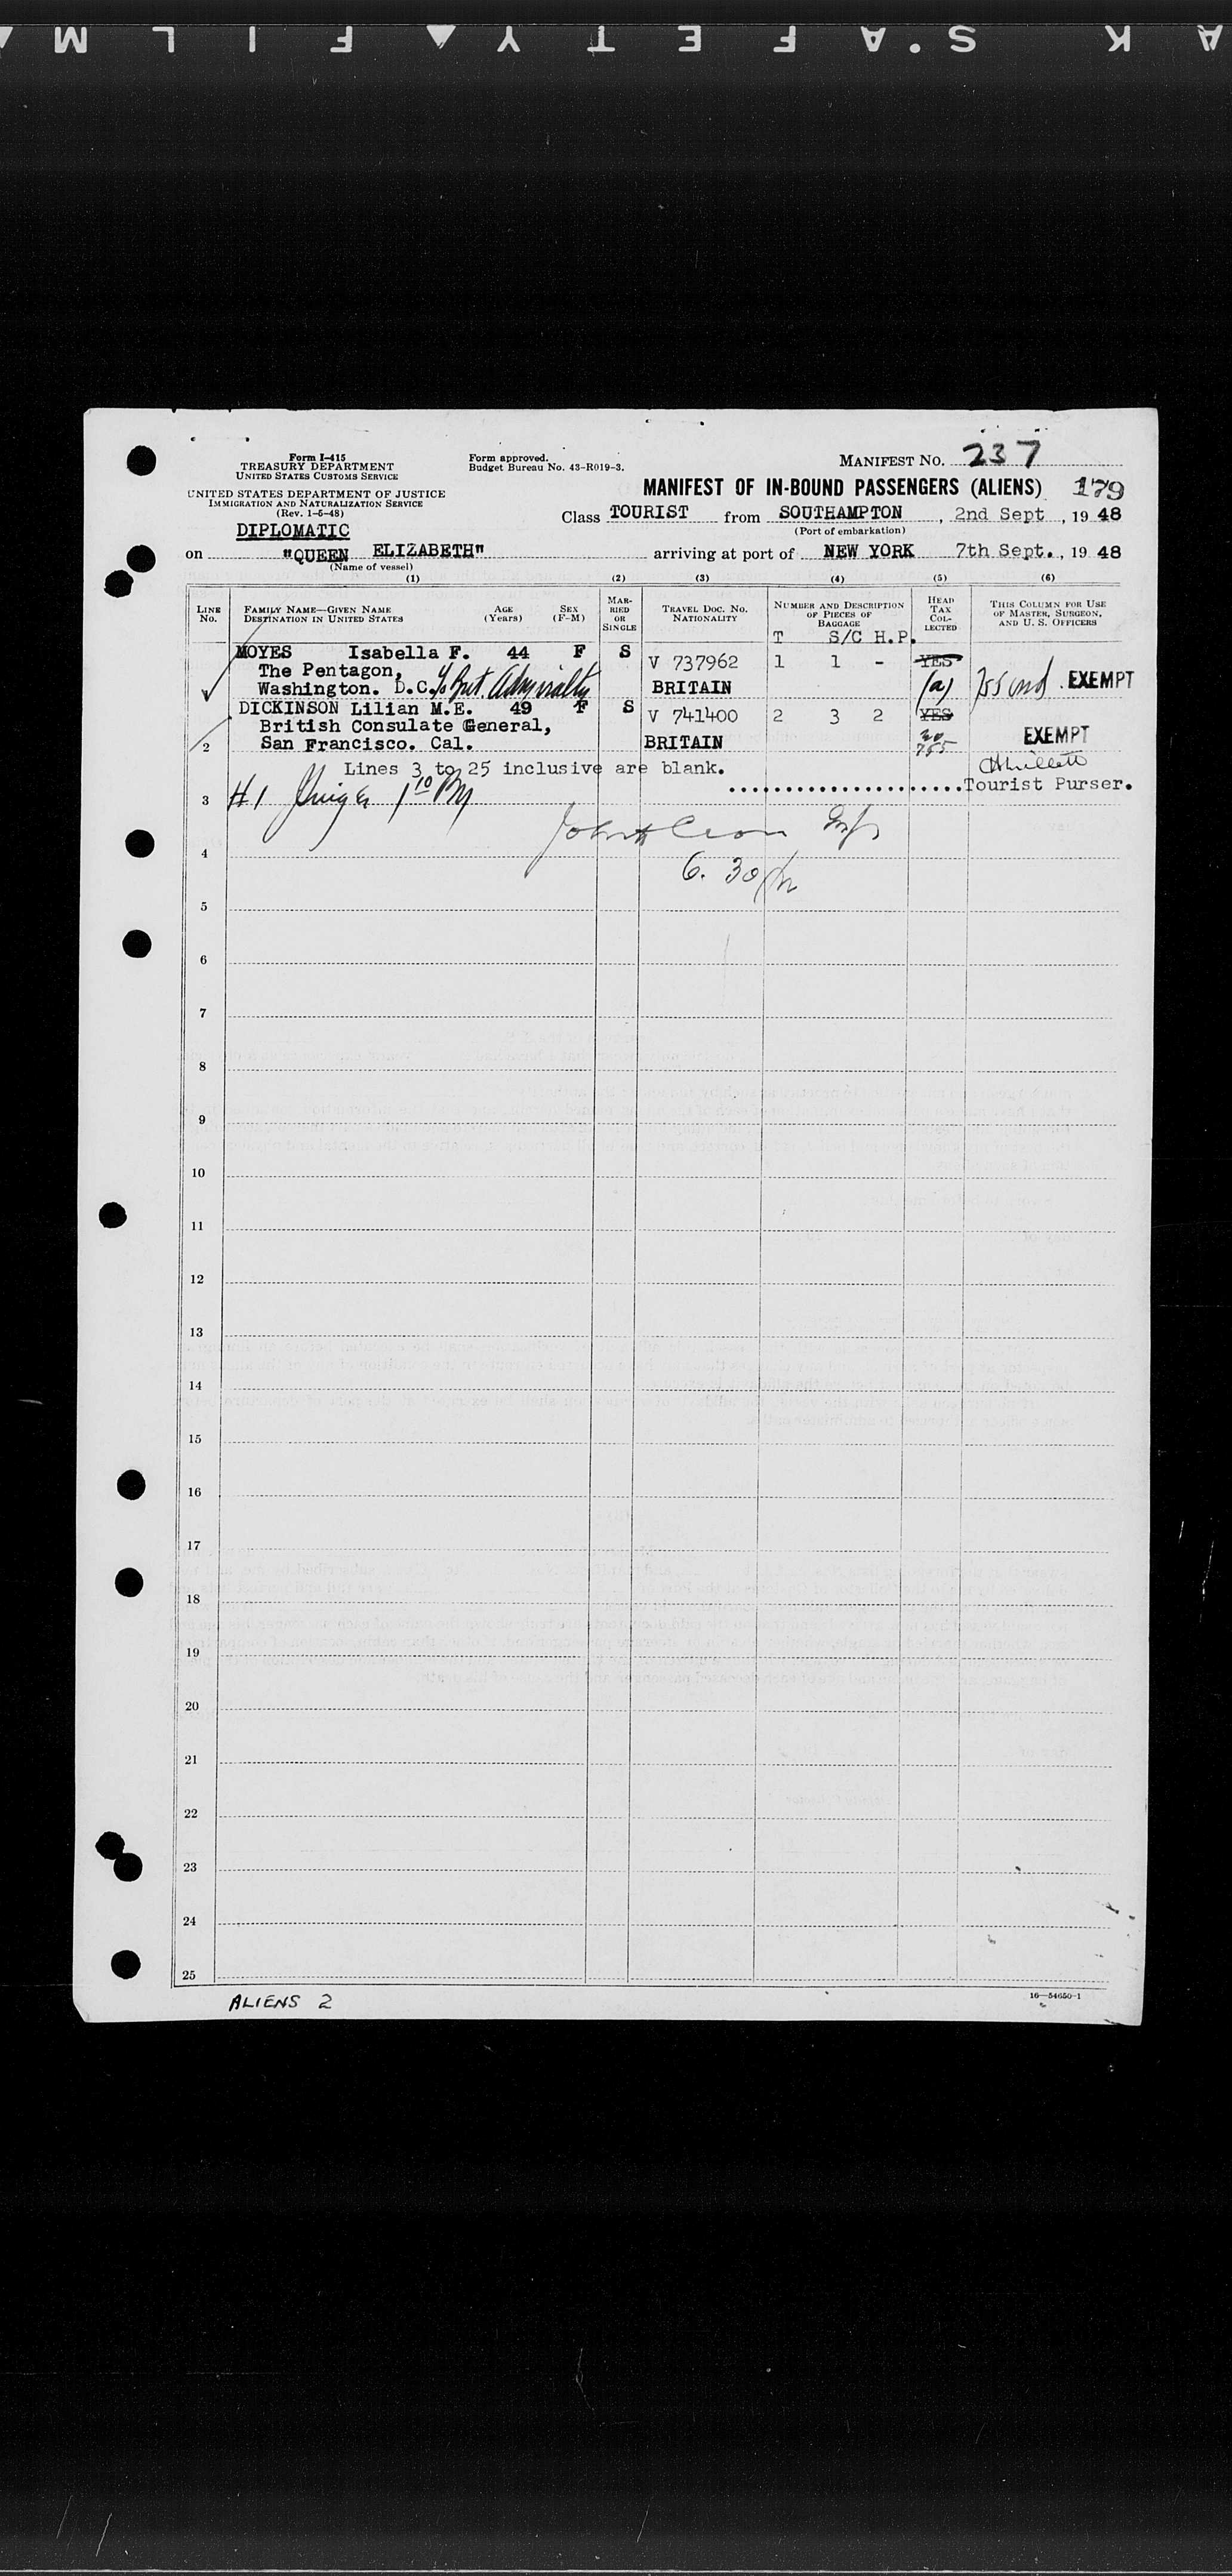 KAK S.AFETY FILM
Form I-415
TREASURY DEPARTMENT
UNITED STATES CUSTOMS SERVICE
Form approved.
Budget Bureau No. 43-R019-3.
MANIFEST NO. 237
UNITED STATES DEPARTMENT OF JUSTICE
IMMIGRATION AND NATURALIZATION SERVICE
(Rev. 1-5-48)
MANIFEST OF IN-BOUND PASSENGERS (ALIENS) 179
Class TOURIST from SOUTHAMPTON, 2nd Sept, 1948
(Port of embarkation)
DIPLOMATIC
on "QUEEN ELIZABETH" arriving at port of NEW YORK 7th Sept., 1948
(Name of vessel)
(1) (2) (3) (4) (5) (6)
LINE No.
FAMILY NAME—GIVEN NAME
DESTINATION IN UNITED STATES
AGE (Years)
SEX (F-M)
MARRIED OR SINGLE
TRAVEL DOC. NO. NATIONALITY
NUMBER AND DESCRIPTION OF PIECES OF BAGGAGE
T S/C H.P.
HEAD TAX COLLECTED
THIS COLUMN FOR USE OF MASTER, SURGEON, AND U. S. OFFICERS
MOYES Isabella F. 44 F S V 737962 1 1 - YES
The Pentagon,
Washington. D.C. c/o Brit. Admiralty BRITAIN (a) EXEMPT
DICKINSON Lilian M.E. 49 F S V 741400 2 3 2 YES
British Consulate General,
2 San Francisco. Cal. BRITAIN EXEMPT
Lines 3 to 25 inclusive are blank.
Tourist Purser.
3 #1 1 10 PM
4
6.30
5
6
7
8
9
10
11
12
13
14
15
16
17
18
19
20
21
22
23
24
25
ALIENS 2
16—54650-1